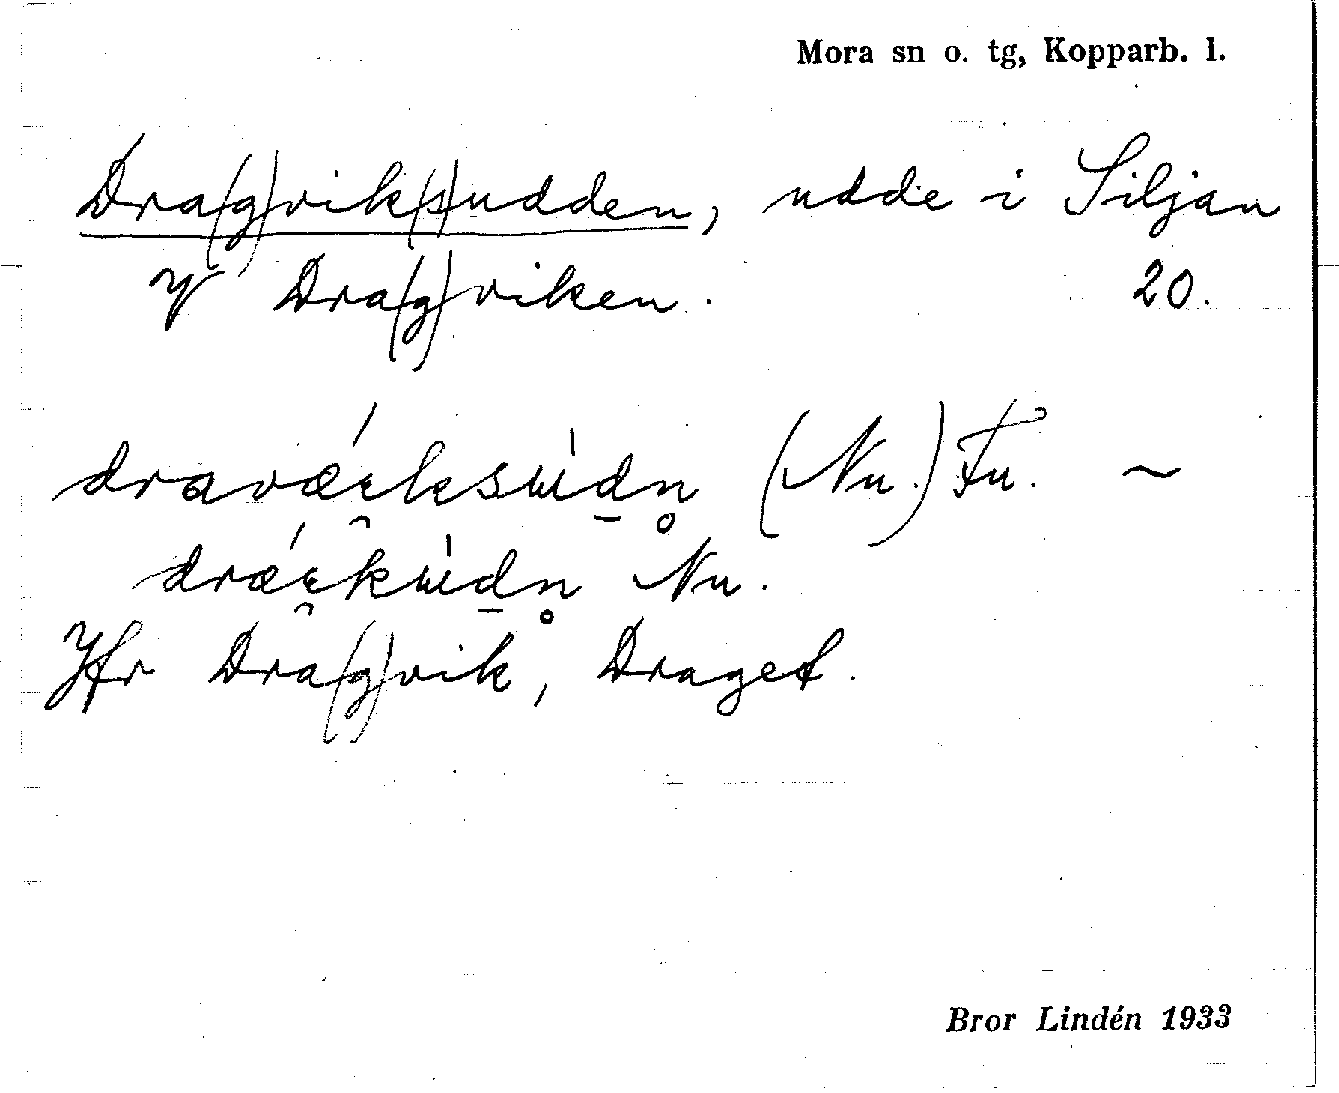 Mora sn o. tg, Kopparb. l.
Dra(g)vik(s)udden, udde i Siljan
V Dra(g)viken. 20.
(Nu.) Fu. ~
Nu.
Jfr Dra(g)vik, Draget.
Bror Lindén 1933